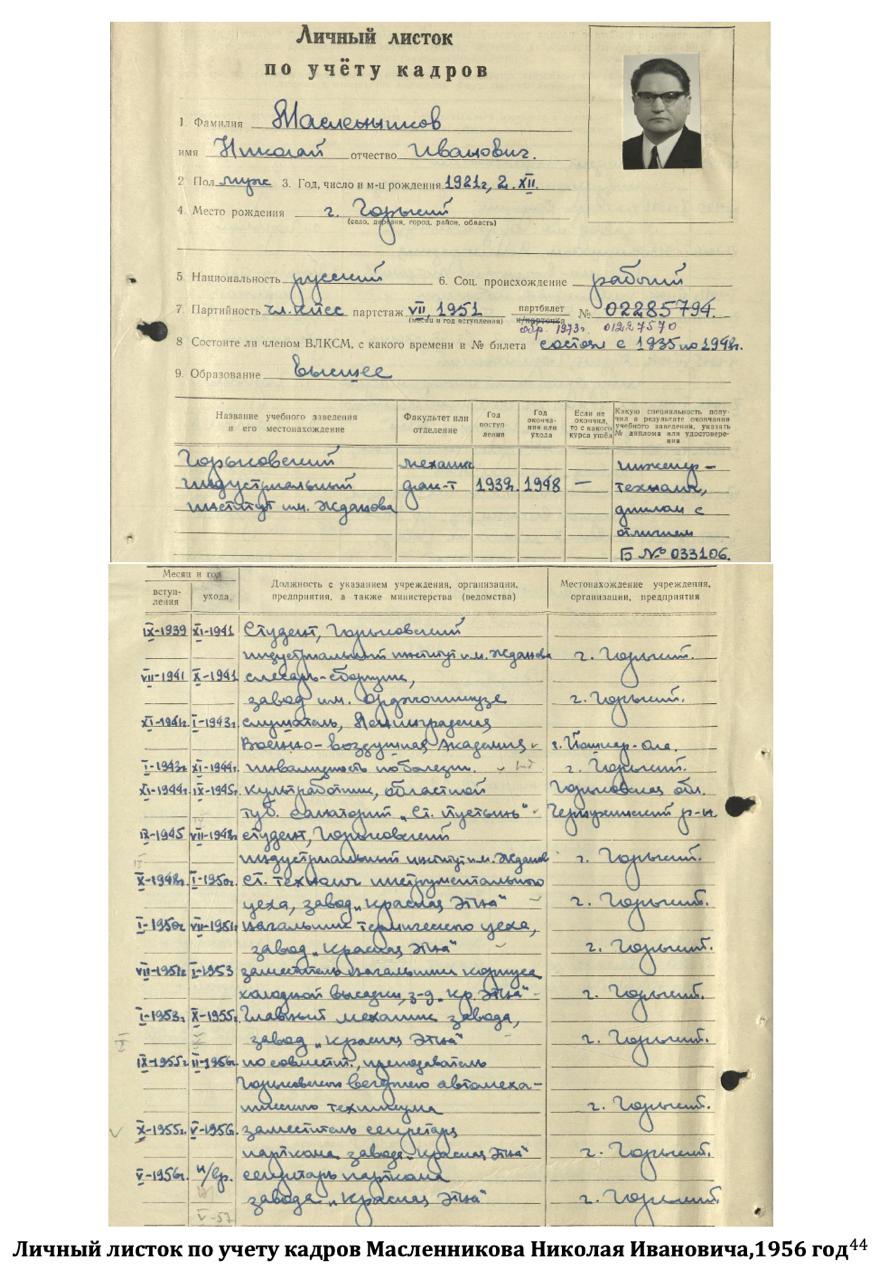 Личный листок
по учёту кадров
1. Фамилия Масленников
имя Николай отчество Иванович.
2 Пол муж 3. Год, число и м-ц рождения 1921г, 2. XII.
4. Место рождения г. Горький
(село, деревня, город, район, область)
5. Национальность русский 6. Соц. происхождение рабочий
7. Партийность чл. КПСС партстаж VII, 1951 партбилет № 02285794.
(месяц и год вступления) к/карточка
обр. 1973г. 01227570
8 Состоите ли членом ВЛКСМ, с какого времени и № билета состоял с 1935 по 1948г.
9. Образование высшее
Название учебного заведения и его местонахождение
Факультет или отделение
Год поступления
Год окончания или ухода
Если не окончил, то с какого курса ушёл
Какую специальность получил в результате окончания учебного заведения, указать № диплома или удостоверения
Горьковский механич инженер-
индустриальный фак-т 1939г. 1948 — технолог,
институт им. Жданова диплом с
отличием
Б № 033106.
Месяц и год
вступления
ухода
Должность с указанием учреждения, организации, предприятия, а также министерства (ведомства)
Местонахождение учреждения, организации, предприятия
IX-1939 XI-1941 Студент, Горьковский
индустриальный институт им. Жданова г. Горький.
VII-1941 X-1941 слесарь-сборщик,
завод им. Орджоникидзе г. Горький.
XI-1941г. I-1943г. слушатель, Ленинградская
Военно-воздушная Академия г. Йошкар-Ола.
I-1943г. XI-1944г. инвалидность по болезни. г. Горький.
XI-1944г. IX-1945г. культработник, областной Горьковская обл.
туб. санаторий „Ст. Пустынь" р-н.
IX-1945 VII-1948г. студент, Горьковский
индустриальный институт им. Жданов г. Горький.
X-1948г. I-1950г. ст. технолог инструментального
цеха, завод „Красная Этна" г. Горький.
I-1950г. VII-1951г. начальник термического цеха,
завод „Красная Этна" г. Горький.
VII-1951г. I-1953 заместитель начальника корпуса
холодной высадки, з-д „Кр. Этна" г. Горький.
I-1953г. X-1955г. Главный механик завода,
завод „Красная Этна" г. Горький.
IX-1955г. II-1956г. по совмест., преподаватель
Горьковского вечернего автомеха-
нического техникума г. Горький.
X-1955г. V-1956. заместитель секретаря
парткома завода „Красная Этна" г. Горький.
V-1956г. н/вр. секретарь парткома
завода „Красная Этна" г. Горький
V-57
Личный листок по учету кадров Масленникова Николая Ивановича,1956 год44